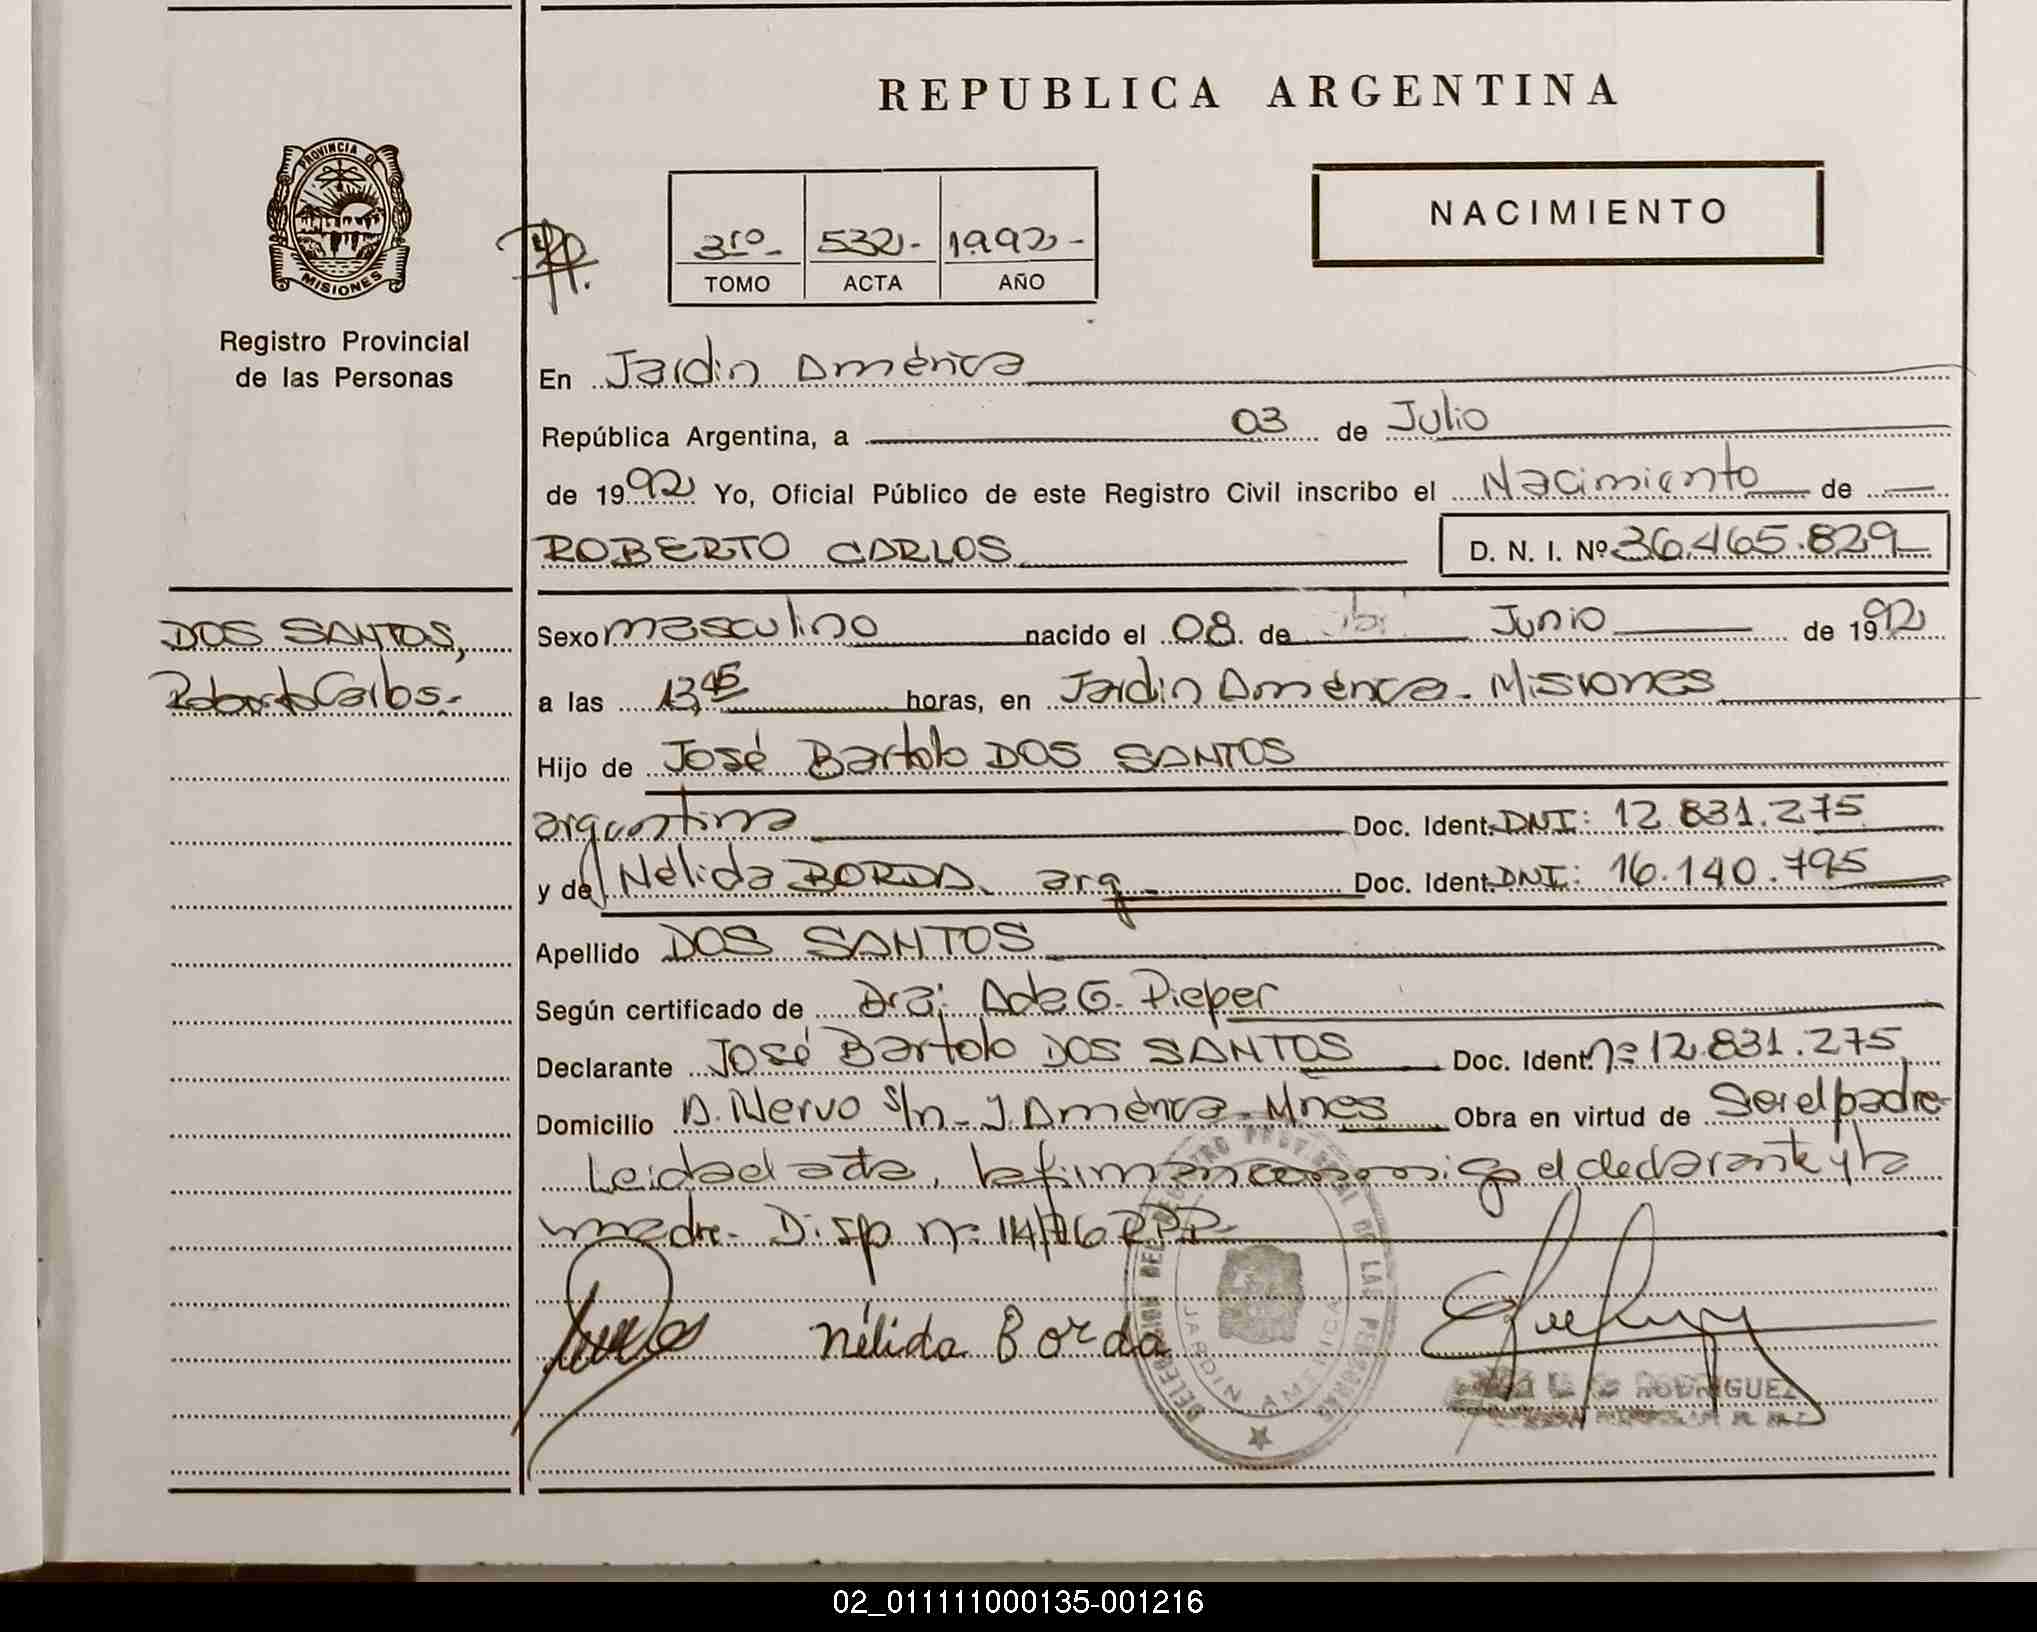 REPUBLICA ARGENTINA
PROVINCIA DE
MISIONES
Registro Provincial
de las Personas
3ro- 532.- 1992-
TOMO ACTA AÑO
NACIMIENTO
En Jardin América
República Argentina, a 03 de Julio
de 1992 Yo, Oficial Público de este Registro Civil inscribo el Nacimiento de
ROBERTO CARLOS D. N. I. Nº 36.465.829
DOS SANTOS,
Roberto Carlos.-
Sexo masculino nacido el 08 de Junio de 1992
a las 13,45 horas, en Jardin América - Misiones
Hijo de José Bartolo DOS SANTOS
argentina Doc. Ident. DNI: 12.831.275
y de Nélida BORDA arg. Doc. Ident. DNI: 16.140.795
Apellido DOS SANTOS
Según certificado de Dra: Ada G. Pieper
Declarante José Bartolo DOS SANTOS Doc. Ident. nº 12.831.275
Domicilio A. Nervo s/n - J. América - Mnes Obra en virtud de Ser el padre-
Leida el acta, la firman conmigo el declarante y la
madre. Disp nº 14/76 RPP.
Nélida Borda
DELEGACION DEL REGISTRO PROVINCIAL DE LAS PERSONAS
JARDIN AMERICA
RODRIGUEZ
02_011111000135-001216